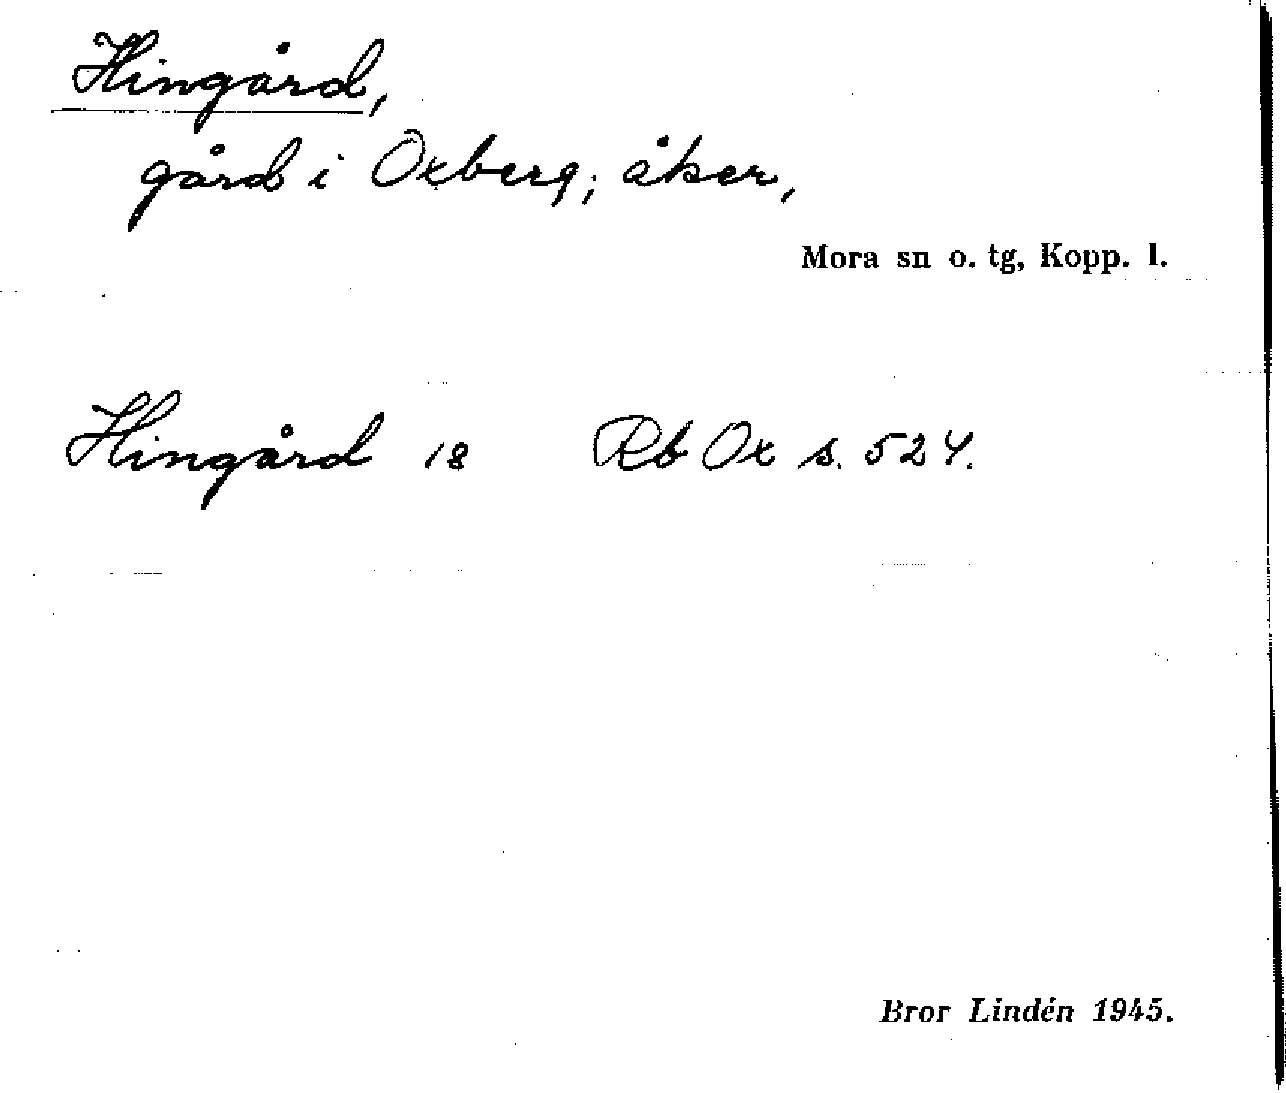 Hingård,
gård i Oxberg; åker,
Mora sn o. tg, Kopp. l.
Hingård 18 Rb Ox s. 524.
Bror Lindén 1945.